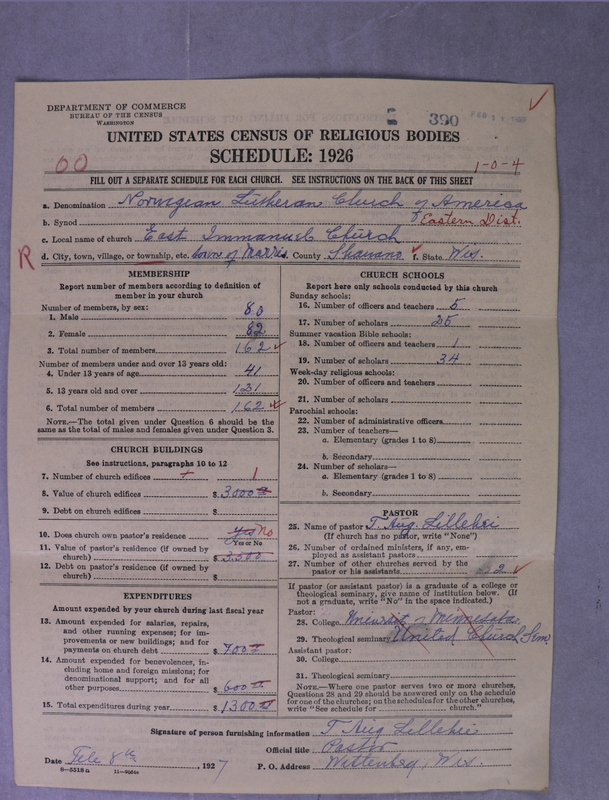 DEPARTMENT OF COMMERCE
BUREAU OF THE CENSUS
WASHINGTON
390
UNITED STATES CENSUS OF RELIGIOUS BODIES
SCHEDULE: 1926
00
1-0-4
FILL OUT A SEPARATE SCHEDULE FOR EACH CHURCH. SEE INSTRUCTIONS ON THE BACK OF THIS SHEET
a. Denomination Norwegian Lutheran Church of America
b. Synod Eastern Dist.
c. Local name of church East Immanuel Church
R d. City, town, village, or township, etc. town of Morris County Shawano f. State Wis.
MEMBERSHIP
Report number of members according to definition of member in your church
Number of members, by sex:
1. Male 80
2. Female 82
3. Total number of members 162
Number of members under and over 13 years old:
4. Under 13 years of age 41
5. 13 years old and over 121
6. Total number of members 162
NOTE.—The total given under Question 6 should be the same as the total of males and females given under Question 3.
CHURCH BUILDINGS
See instructions, paragraphs 10 to 12
7. Number of church edifices 1
8. Value of church edifices $ 3000
9. Debt on church edifices $
10. Does church own pastor's residence Yes No
Yes or No
11. Value of pastor's residence (if owned by church) $ 3500
12. Debt on pastor's residence (if owned by church) $
EXPENDITURES
Amount expended by your church during last fiscal year
13. Amount expended for salaries, repairs, and other running expenses; for improvements or new buildings; and for payments on church debt $ 700
14. Amount expended for benevolences, including home and foreign missions; for denominational support; and for all other purposes $ 600
15. Total expenditures during year $ 1300
CHURCH SCHOOLS
Report here only schools conducted by this church
Sunday schools:
16. Number of officers and teachers 5
17. Number of scholars 25
Summer vacation Bible schools:
18. Number of officers and teachers 1
19. Number of scholars 34
Week-day religious schools:
20. Number of officers and teachers
21. Number of scholars
Parochial schools:
22. Number of administrative officers
23. Number of teachers—
a. Elementary (grades 1 to 8)
b. Secondary
24. Number of scholars—
a. Elementary (grades 1 to 8)
b. Secondary
PASTOR
25. Name of pastor T. Aug. Lillehei
(If church has no pastor, write "None")
26. Number of ordained ministers, if any, employed as assistant pastors
27. Number of other churches served by the pastor or his assistants 2
If pastor (or assistant pastor) is a graduate of a college or theological seminary, give name of institution below. (If not a graduate, write "No" in the space indicated.)
Pastor:
28. College University of Minnesota
29. Theological seminary United Church Sem
Assistant pastor:
30. College
31. Theological seminary
NOTE.—Where one pastor serves two or more churches, Questions 28 and 29 should be answered only on the schedule for one of the churches; on the schedules for the other churches, write "See schedule for church."
Signature of person furnishing information T Aug. Lillehei
Official title Pastor
Date Feb 8th, 1927 P. O. Address Wittenberg, Wis.
8-5518a